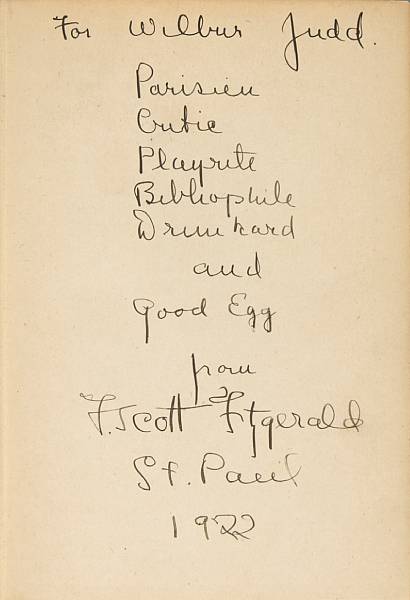 For Wilbur Judd.
Parisien
Critic
Playrite
Bibliophile
Drunkard
and
Good Egg
from
F. Scott Fitzgerald
St. Paul
1922